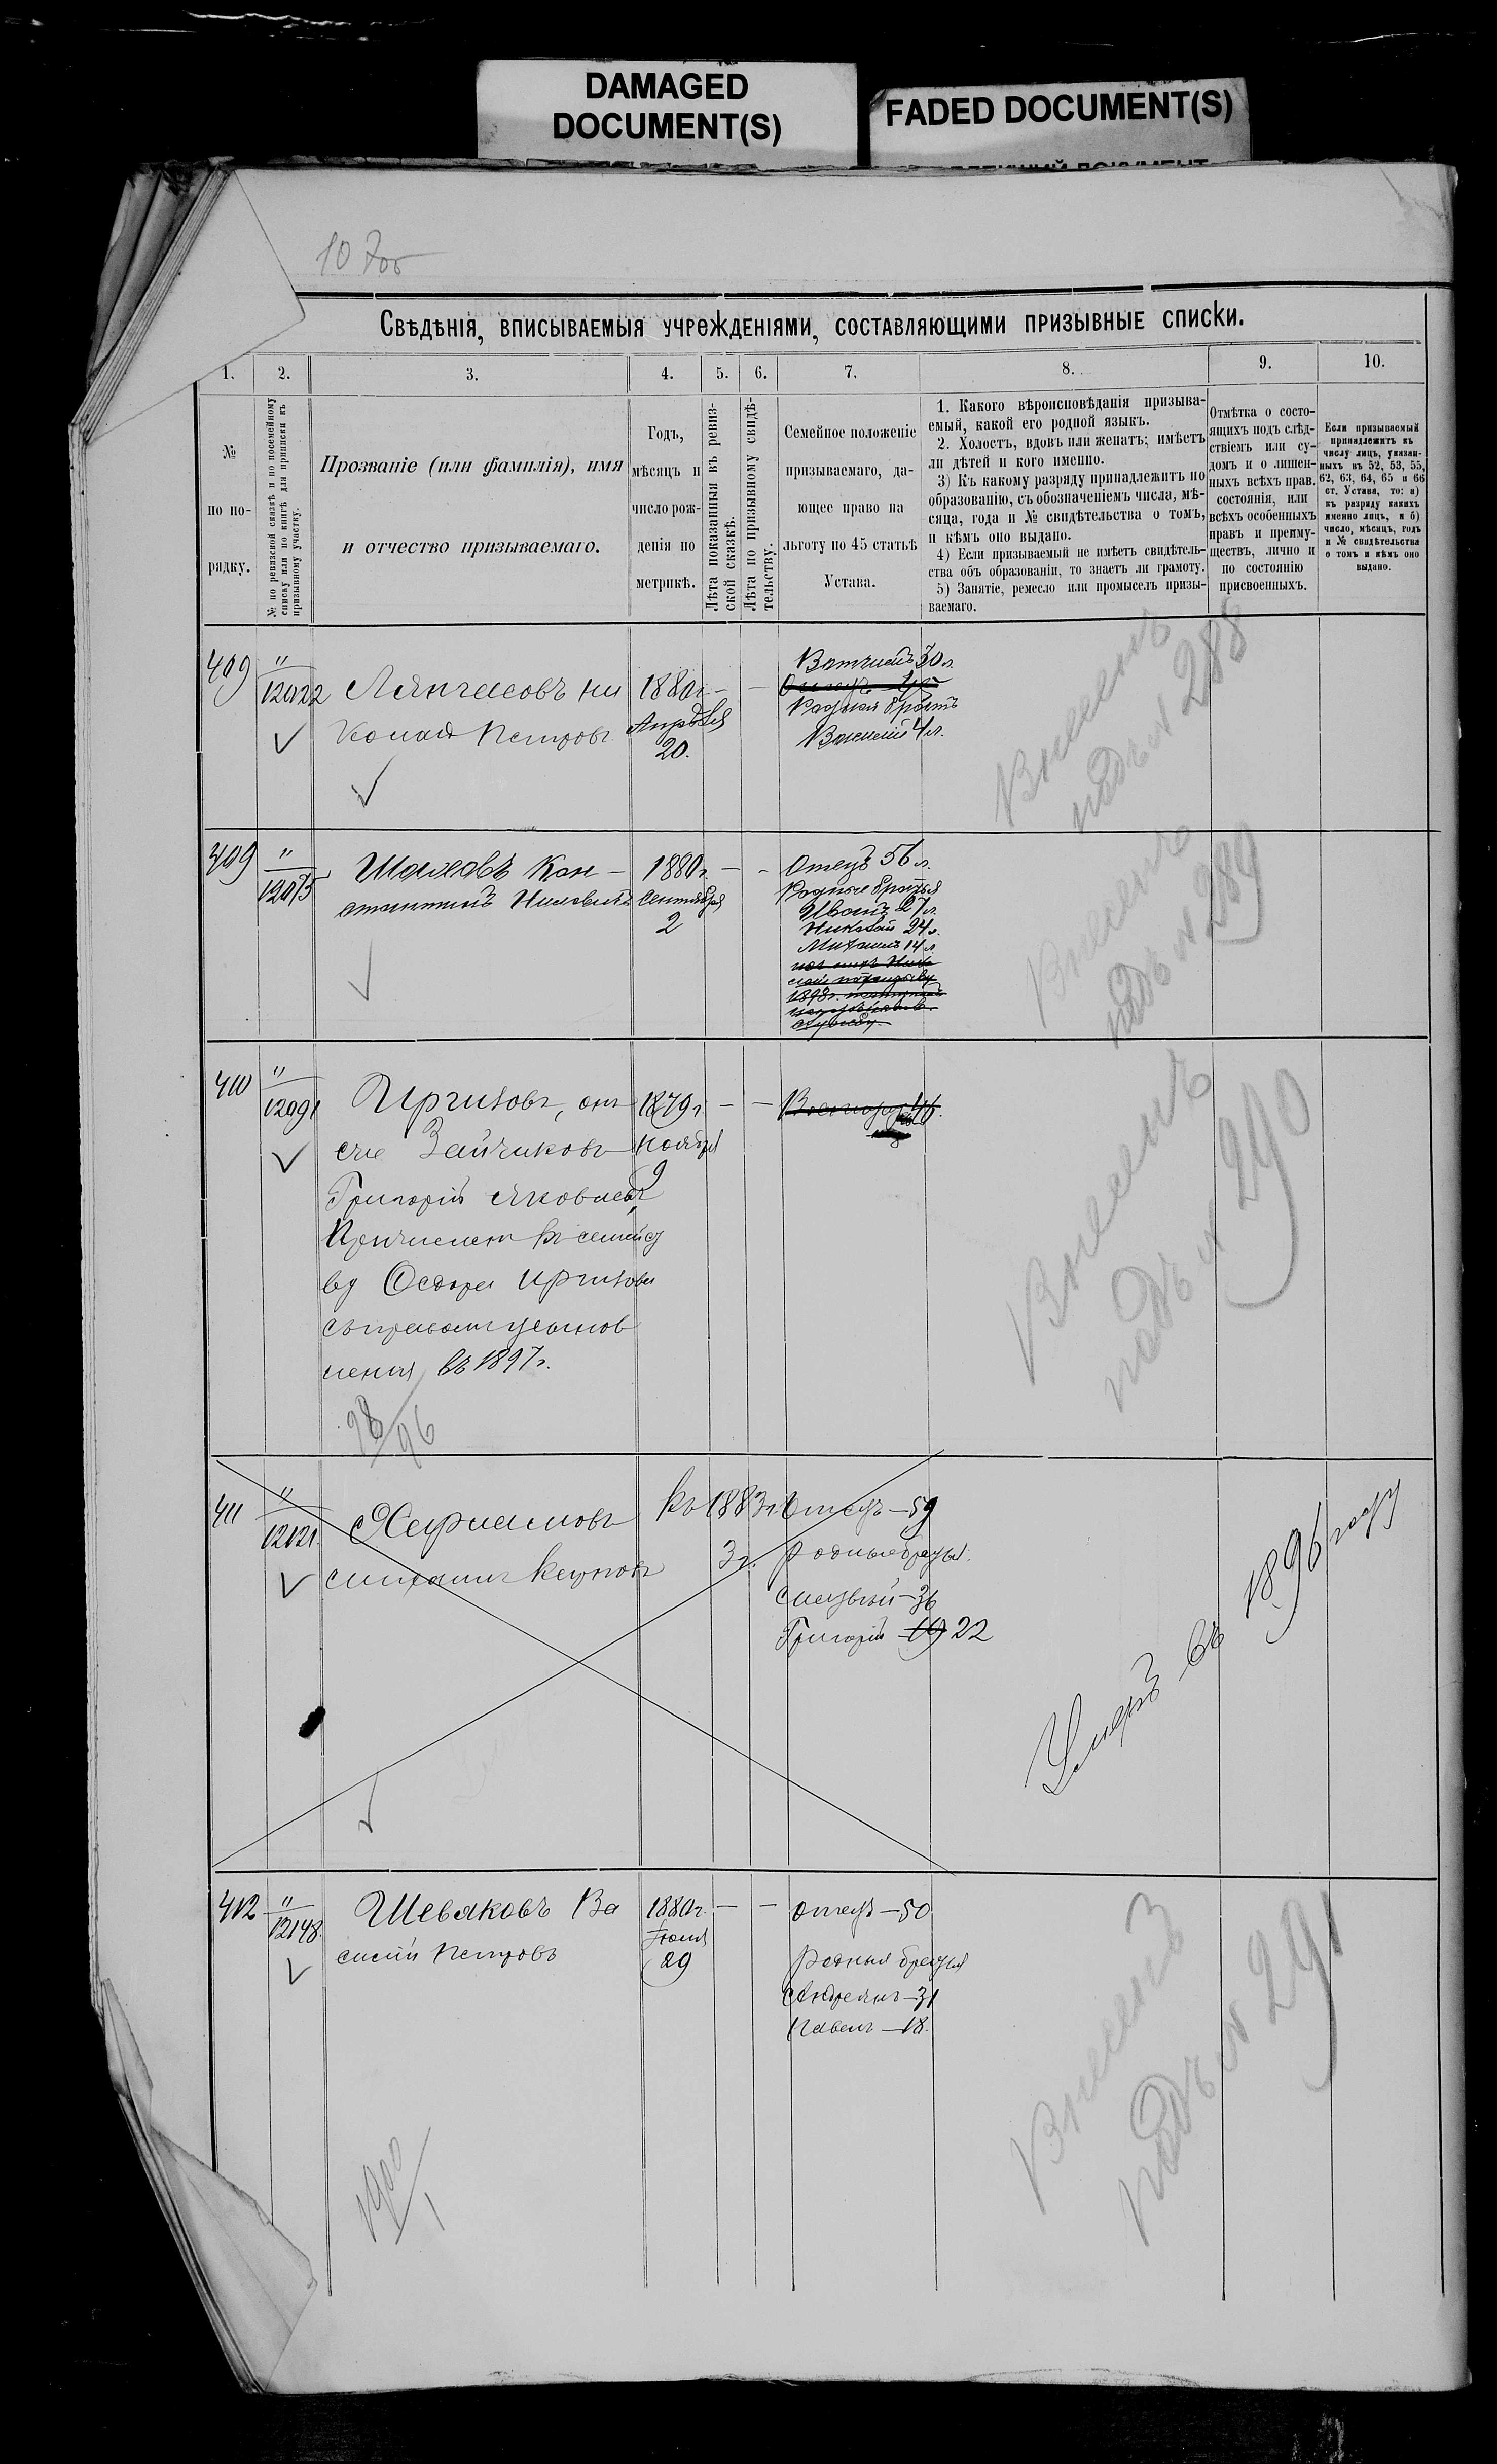 DAMAGED
DOCUMENT(S)
FADED DOCUMENT(S)
Свѣдѣнія, вписываемыя учрежденіями, составляющими призывные списки.
1. 2. 3. 4. 5. 6. 7. 8. 9. 10.
№
по по-
рядку.
№ по ревизской сказкѣ и по посемейному
списку или по книгѣ для приписки къ
призывному участку.
Прозваніе (или фамилія), имя
и отчество призываемаго.
Годъ,
мѣсяцъ и
число рож-
денія по
метрикѣ.
Лѣта показанныя въ ревиз-
ской сказкѣ.
Лѣта по призывному свидѣ-
тельству.
Семейное положеніе
призываемаго, да-
ющее право на
льготу по 45 статьѣ
Устава.
1. Какого вѣроисповѣданія призыва-
емый, какой его родной языкъ.
2. Холостъ, вдовъ или женатъ; имѣетъ
ли дѣтей и кого именно.
3) Къ какому разряду принадлежитъ по
образованію, съ обозначеніемъ числа, мѣ-
сяца, года и № свидѣтельства о томъ,
и кѣмъ оно выдано.
4) Если призываемый не имѣетъ свидѣтель-
ства объ образованіи, то знаетъ ли грамоту.
5) Занятіе, ремесло или промыселъ призы-
ваемаго.
Отмѣтка о состо-
ящихъ подъ слѣд-
ствіемъ или су-
домъ и о лишен-
ныхъ всѣхъ прав.
состоянія, или
всѣхъ особенныхъ
правъ и преиму-
ществъ, лично и
по состоянію
присвоенныхъ.
Если призываемый
принадлежитъ къ
числу лицъ, указан-
ныхъ въ 52, 53, 55,
62, 63, 64, 65 и 66
ст. Устава, то: а)
къ разряду какихъ
именно лицъ, и б)
число, мѣсяцъ, годъ
и № свидѣтельства
о томъ и кѣмъ оно
выдано.
409
"
12022
Ни
колай Петровъ
1880г.
Апрѣля
20.
Вотчимъ 30 л.
Родной братъ
Василій 4 л.
Внесенъ
подъ № 288
409
"
12075
Кон-
стантинъ
1880г.
Сентября
2
Отецъ 56 л.
Родные братья
Иванъ 27 л.
Николай 24 л.
Михаилъ 14 л.
Внесенъ
подъ № 289
410
"
12091
Иргизовъ, онъ
же Зайчиковъ
Григорій Яковлевъ
Причисленъ къ семейст
ву Ѳедора Иргизова
съ правомъ усынов
ленія въ 1897г.
98/96
1879г.
Ноября
9
Внесенъ
подъ № 290
411
"
12121.
Михаилъ
къ 1883г.
3г.
Отецъ — 59
Родные братья:
Григорій — 19 22
Умеръ въ 1896 году
412
"
12148.
Шеваковъ Ва
силій Петровъ
1900/1
1880г.
Іюля
29
Отецъ — 50
Родныя братья
Андреянъ — 31
Павелъ — 18.
Внесенъ
подъ № 291